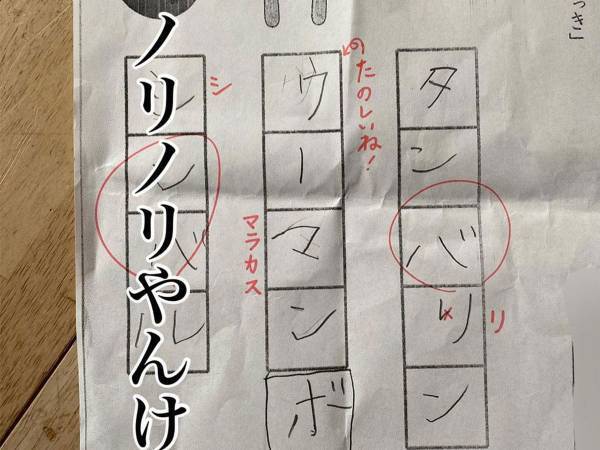 っき」
タンバリン
リ
のたのしいね!
ウーマンボ
マラカス
シ
ンバル
ノリノリやんけ